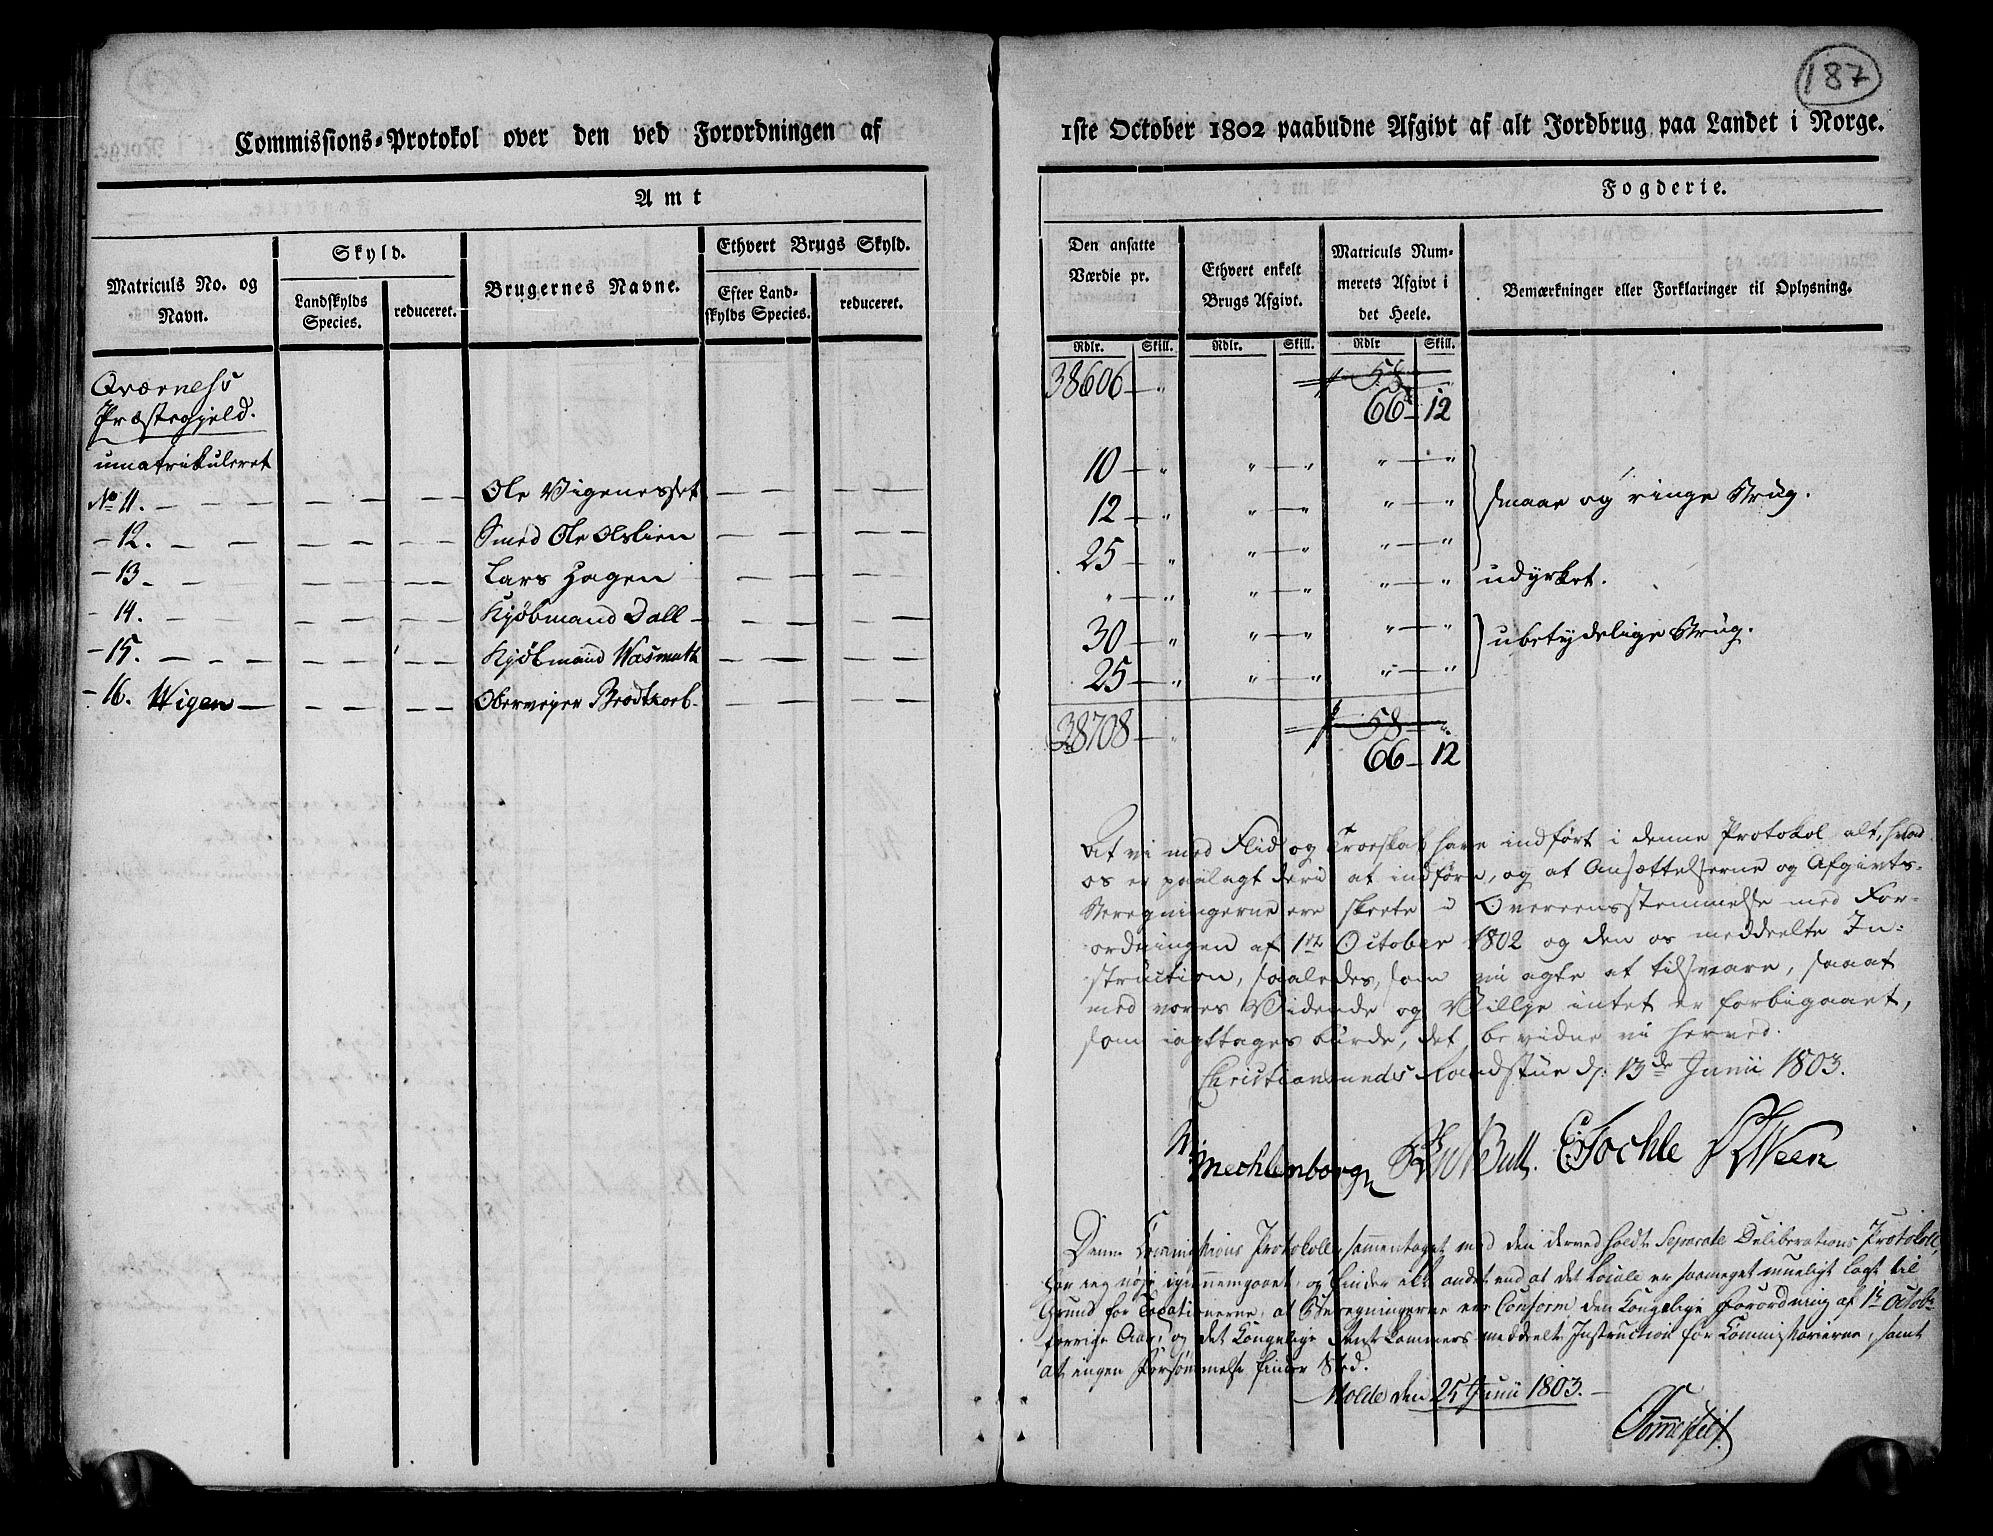 187
Commissions-Protokol over den ved Forordningen af 1ste October 1802 paabudne Afgivt af alt Jordbrug paa Landet i Norge.
Amt
Fogderie.
Matriculs No. og Navn.
Skyld.
Landskylds Species.
reduceret.
Brugernes Navne.
Ethvert Brugs Skyld.
Efter Landskylds Species.
reduceret.
Den ansatte Værdie pr.
Ethvert enkelt Brugs Afgivt.
Matriculs Nummerets Afgivt i det Heele.
Bemærkninger eller Forklaringer til Oplysning.
Rdlr. Skill. Rdlr. Skill. Rdlr Skill.
Qværness
Præstegjeld.
38606 — „ 58 „
66 — 12
umatrikuleret
No 11. — Ole Vigenesset — 10 — „ „ — „ „ — „
— 12. — Smed Ole Olslien — 12 — „ „ — „ „ — „ smaae og ringe Brug.
— 13 — Lars Hagen — 25 — „ „ — „ „ — „
— 14. — Kjøbmand Dall — „ — „ „ — „ „ — „ udyrket.
— 15. — Kjøbmand Wasmuth — 30 — „ „ — „ „ — „ ubetydelige Brug.
— 16. Wigen — Oberveyer Brodtkorb — 25 — „ „ — „ „ — „
38708 — „ 58 — „
66 — 12
At vi med Flid og Troeskab have indført i denne Protokol alt, hvad
os er paalagt deri at indføre, og at Ansættelserne og Afgivts-
Beregningerne ere skeete i Overeensstemmelse med For-
ordningen af 1ste October 1802 og den os meddeelte In-
struction, saaledes, som vi agte at tilsvare, saaat
med vores Vidende og Villje intet er forbigaaet,
som iagttages burde, det bevidne vi herved.
Christiansunds Raadstue d. 13de Junii 1803.
Mechlenborg Bull. Tochle Ween
Denne Commissions Protokoll, sammentaget med den derved holdte Separate Deliberations Protokoll,
har jeg nøje igiennemgaaet, og finder ikke andet end at det locale er saameget mueligt lagt til
Grund for Taxationerne, at Beregningerne ere Conform den Kongelige Forordning af 1ste Octobr
forrige Aar, og det Kongelige Rentekammers meddeelte Instruction for Commissarierne, samt
at ingen Forsømmelse finder Sted.
Molde den 25 Junii 1803.